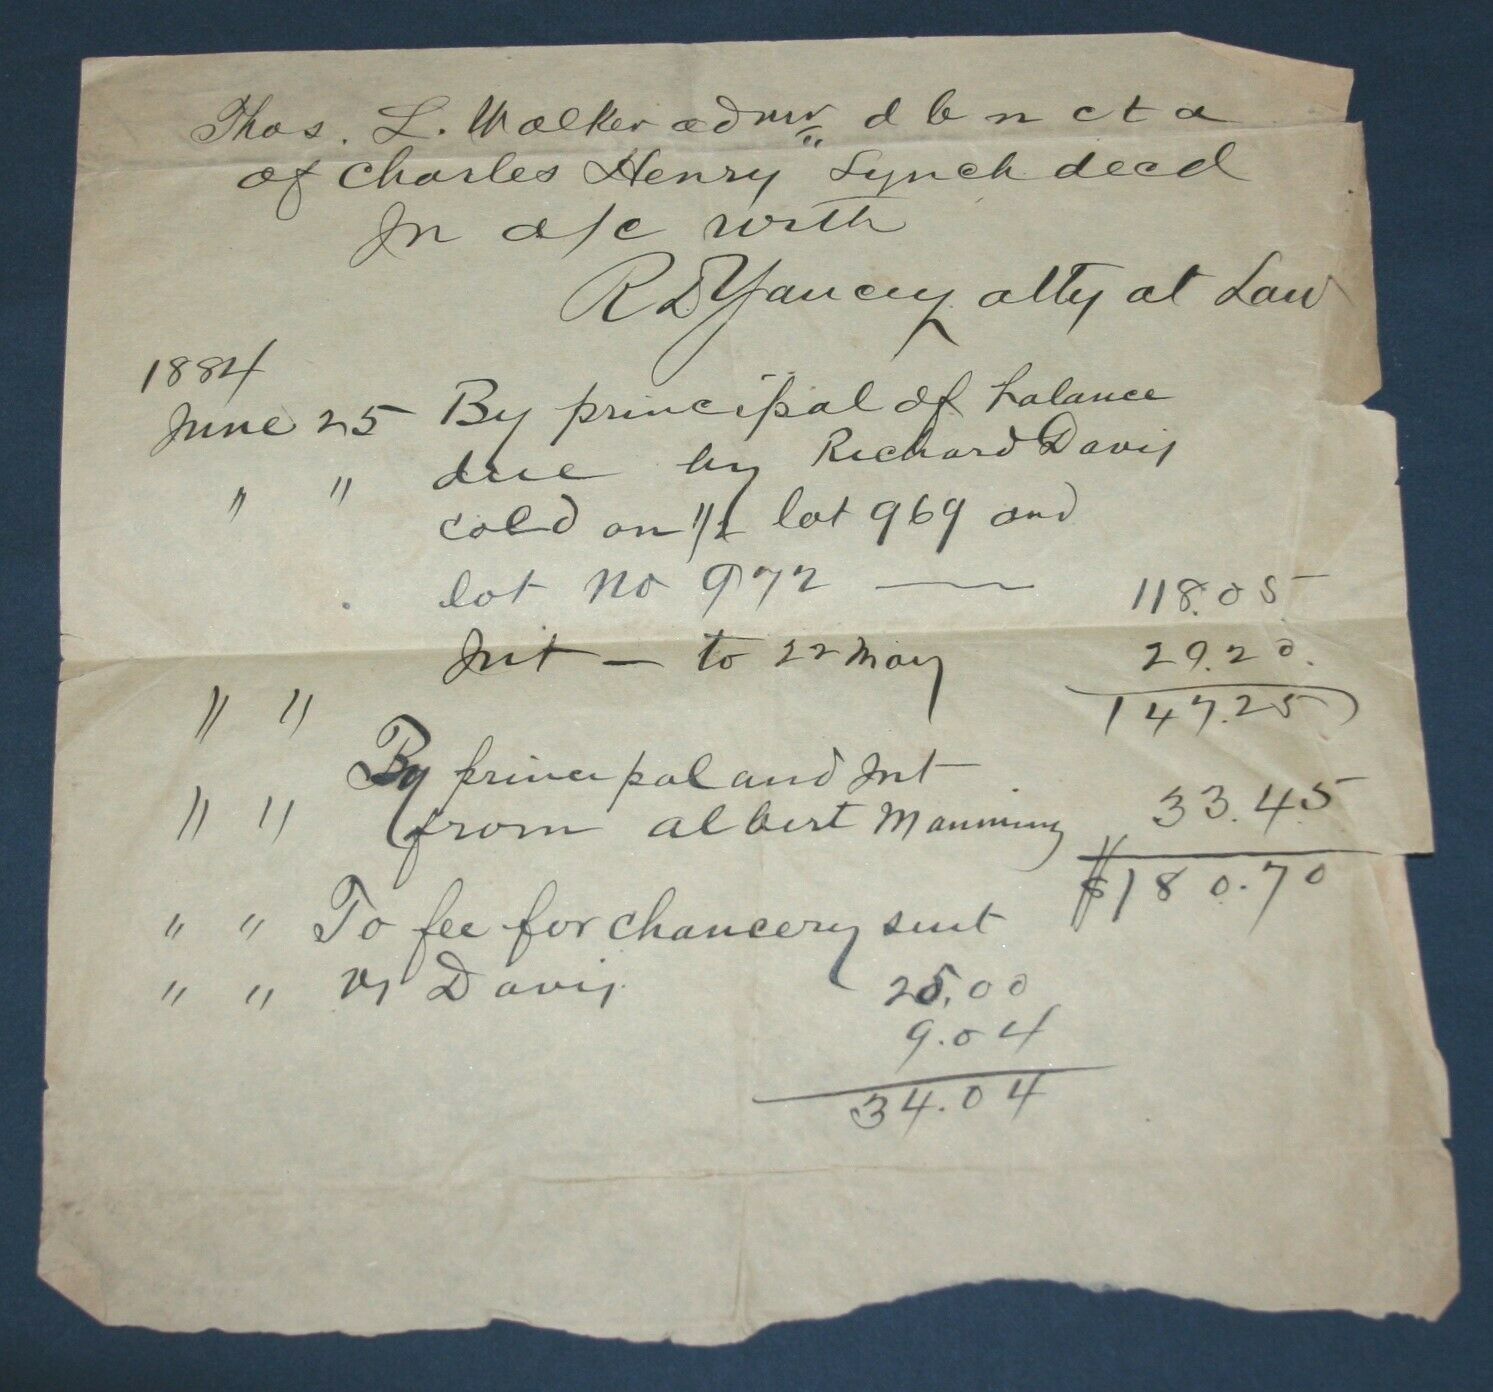 Thos. L. Walker admr d b n c t a
of Charles Henry Lynch decd
In a/c with
R D Yancey atty at Law
1884
June 25 By principal of balance
" " due by Richard Davis
cold on 1/2 lot 969 and
lot No 972 — 118.05
Int — to 22 May 29.20.
" " 147.25
By principal and Int
" " from albert Manning 33.45
$180.70
" " To fee for chancery suit
" " vs Davis 25.00
9.04
34.04